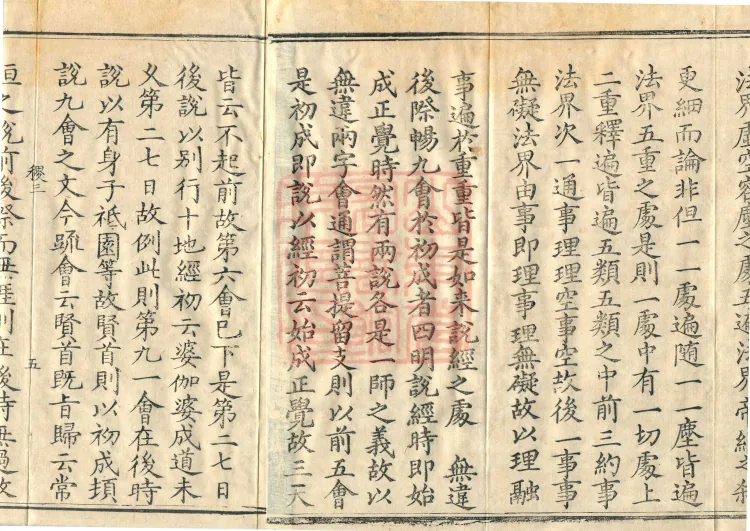 更細而論非但一一處遍随一一塵皆遍
法界五重之處是則一處中有一切處上
二重釋遍皆遍五類五類之中前三約事
法界次一通事理理空事空故後一事事
無礙法界由事即理事理無礙故以理融
事遍於重重皆是如来說經之處　無違
後際暢九會於初成者四明說經時即始
成正覺時然有兩說各是一師之義故以
無違兩字會通謂菩提留支則以前五會
是初成即說以經初云始成正覺故三天
皆云不起前故第六會已下是第二七日
後說以别行十地經初云婆伽婆成道未
乆第二七日故例此則第九一會在後時
說以有身子祗園等故賢首則以初成頓
說九會之文今䟽會云賢首既㫖歸云常
稷三
五
恒之說前後際而無涯則在後時無過故